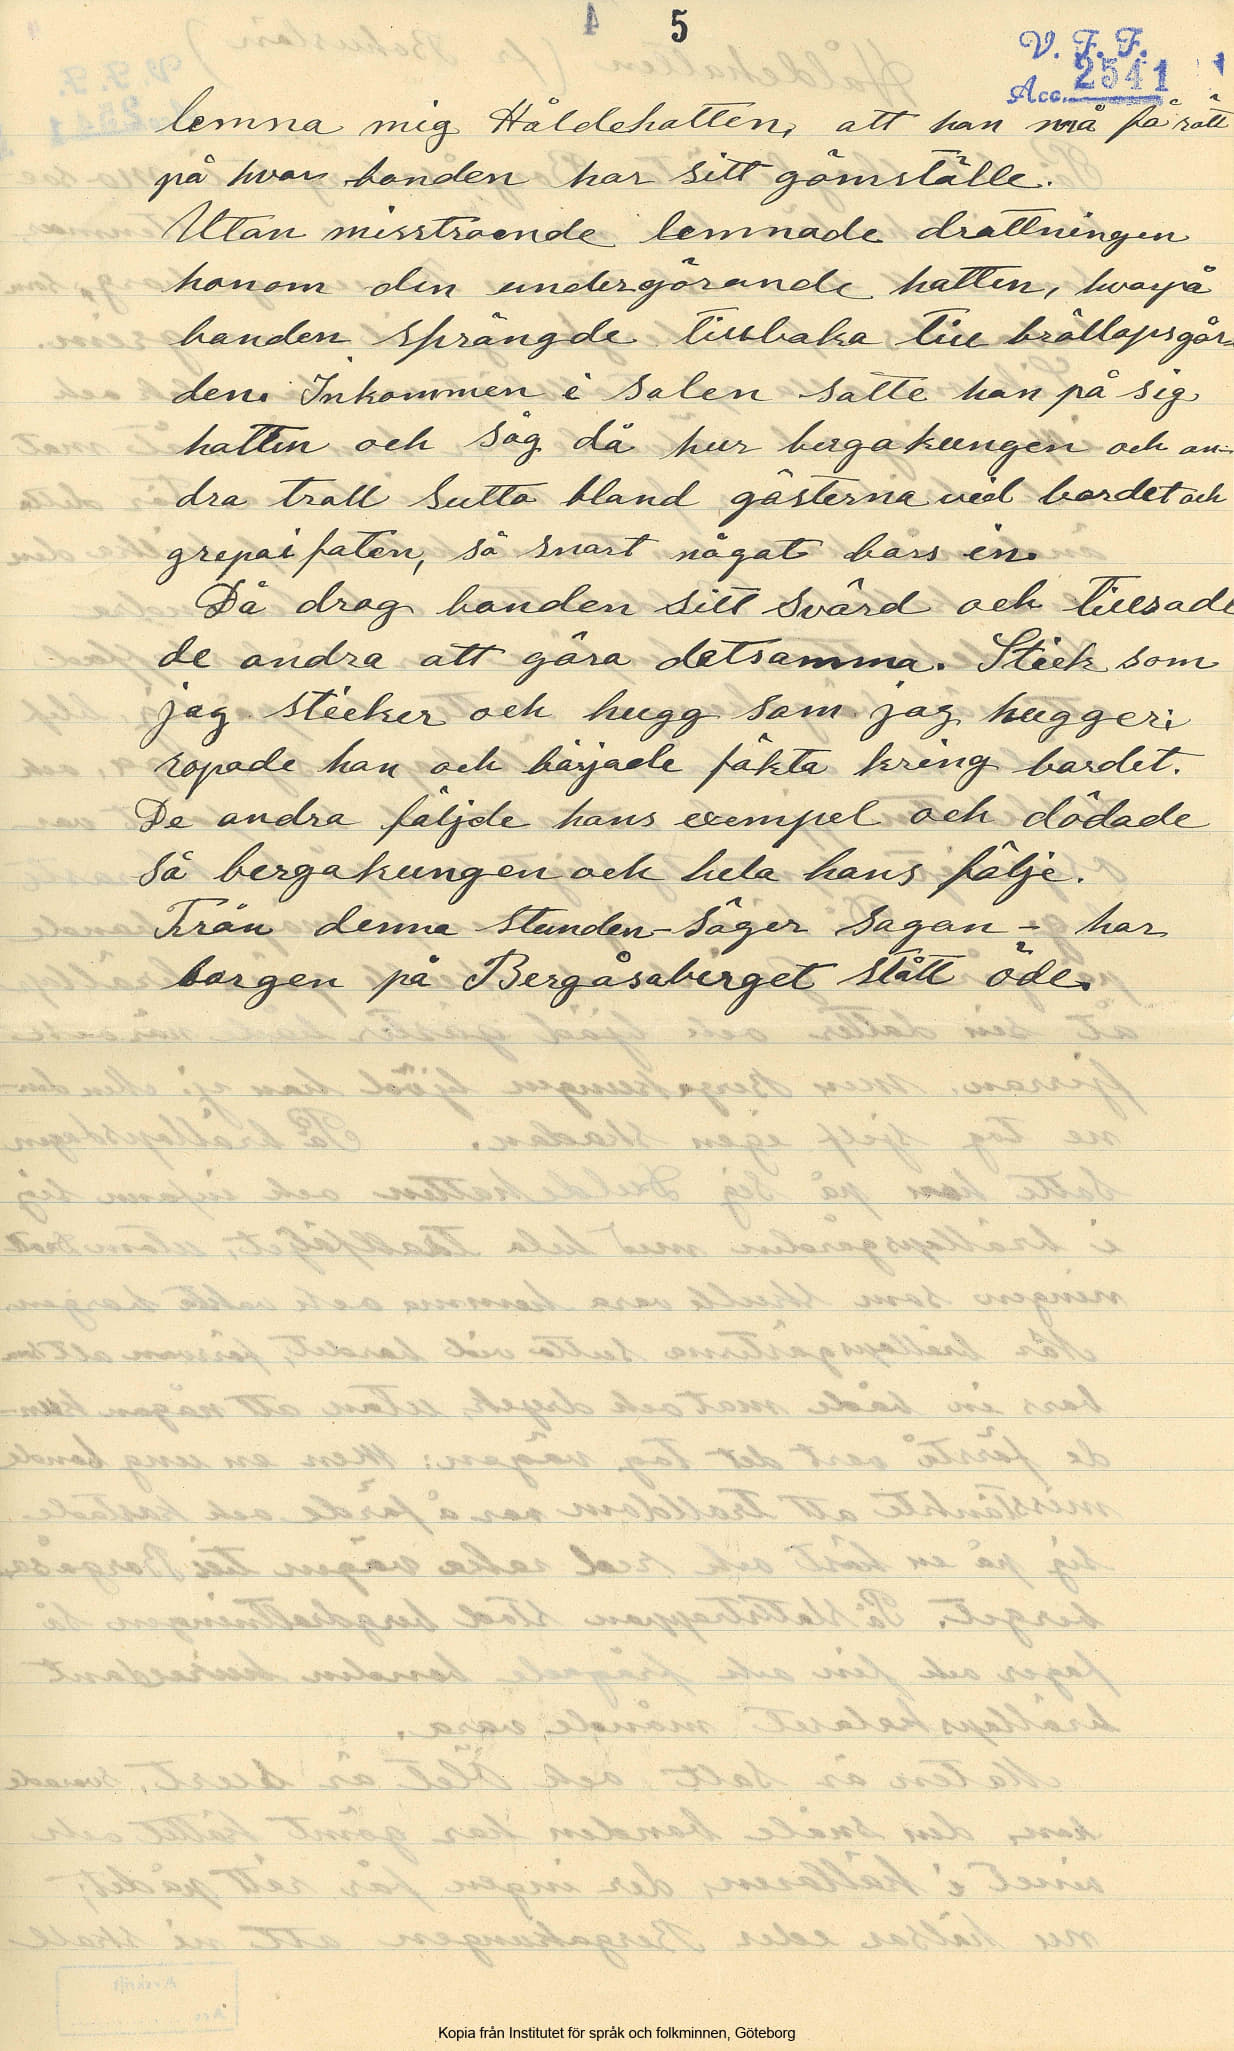 5
V. F. F.
Acc. 2541
lemna mig Håldehatten, att han må få rätt
på hvar bonden har sitt gömställe.
Utan misstroende lemnade drottningen
honom den undergörande hatten, hvarpå
bonden sprängde tillbaka till bröllopsgår-
den. Inkommen i salen satte han på sig
hatten och såg då hur bergakungen och an-
dra troll sutto bland gästerna vid bordet och
grepo i faten, så snart något bars in.
Då drog bonden sitt svärd och tillsade
de andra att göra detsamma. Stick som
jag sticker och hugg som jag hugger:
ropade han och började fäkta kring bordet.
De andra följde hans exempel och dödade
så bergakungen och hela hans följe.
Från denna stunden – säger sagan – har
borgen på Bergåsaberget stått öde.
Kopia från Institutet för språk och folkminnen, Göteborg